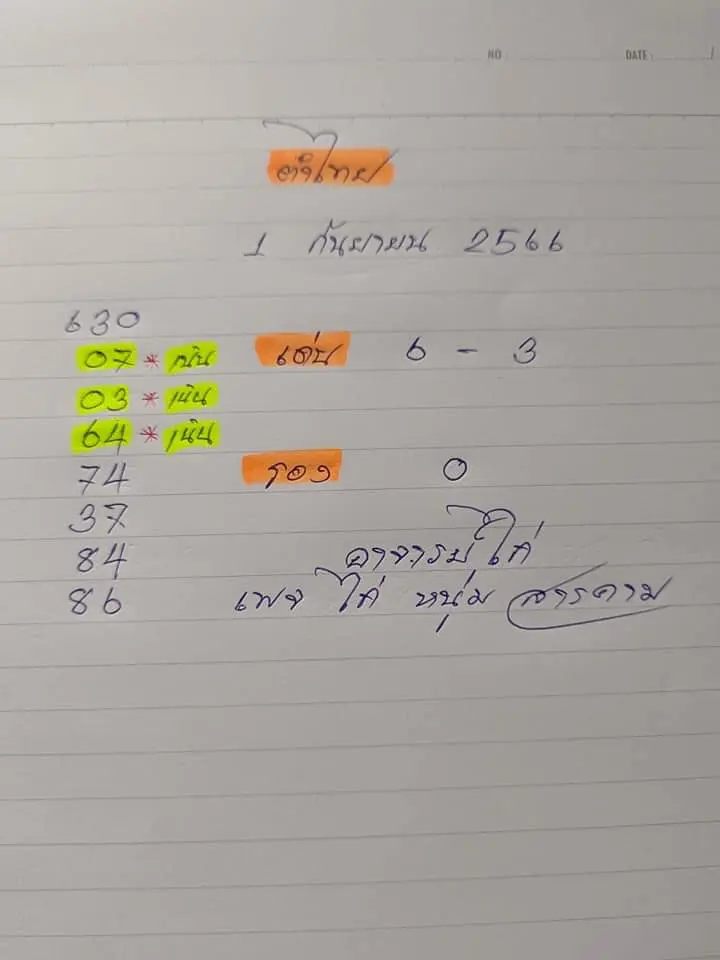 NO
DATE
1 กันยายน 2566
630
07 * เน้น เด่น 6 - 3
03 * เน้น
64 * เน้น
74 รอง 0
37
84 อาจารย์ ไก่
86 เพจ ไก่ หนุ่ม สารคาม